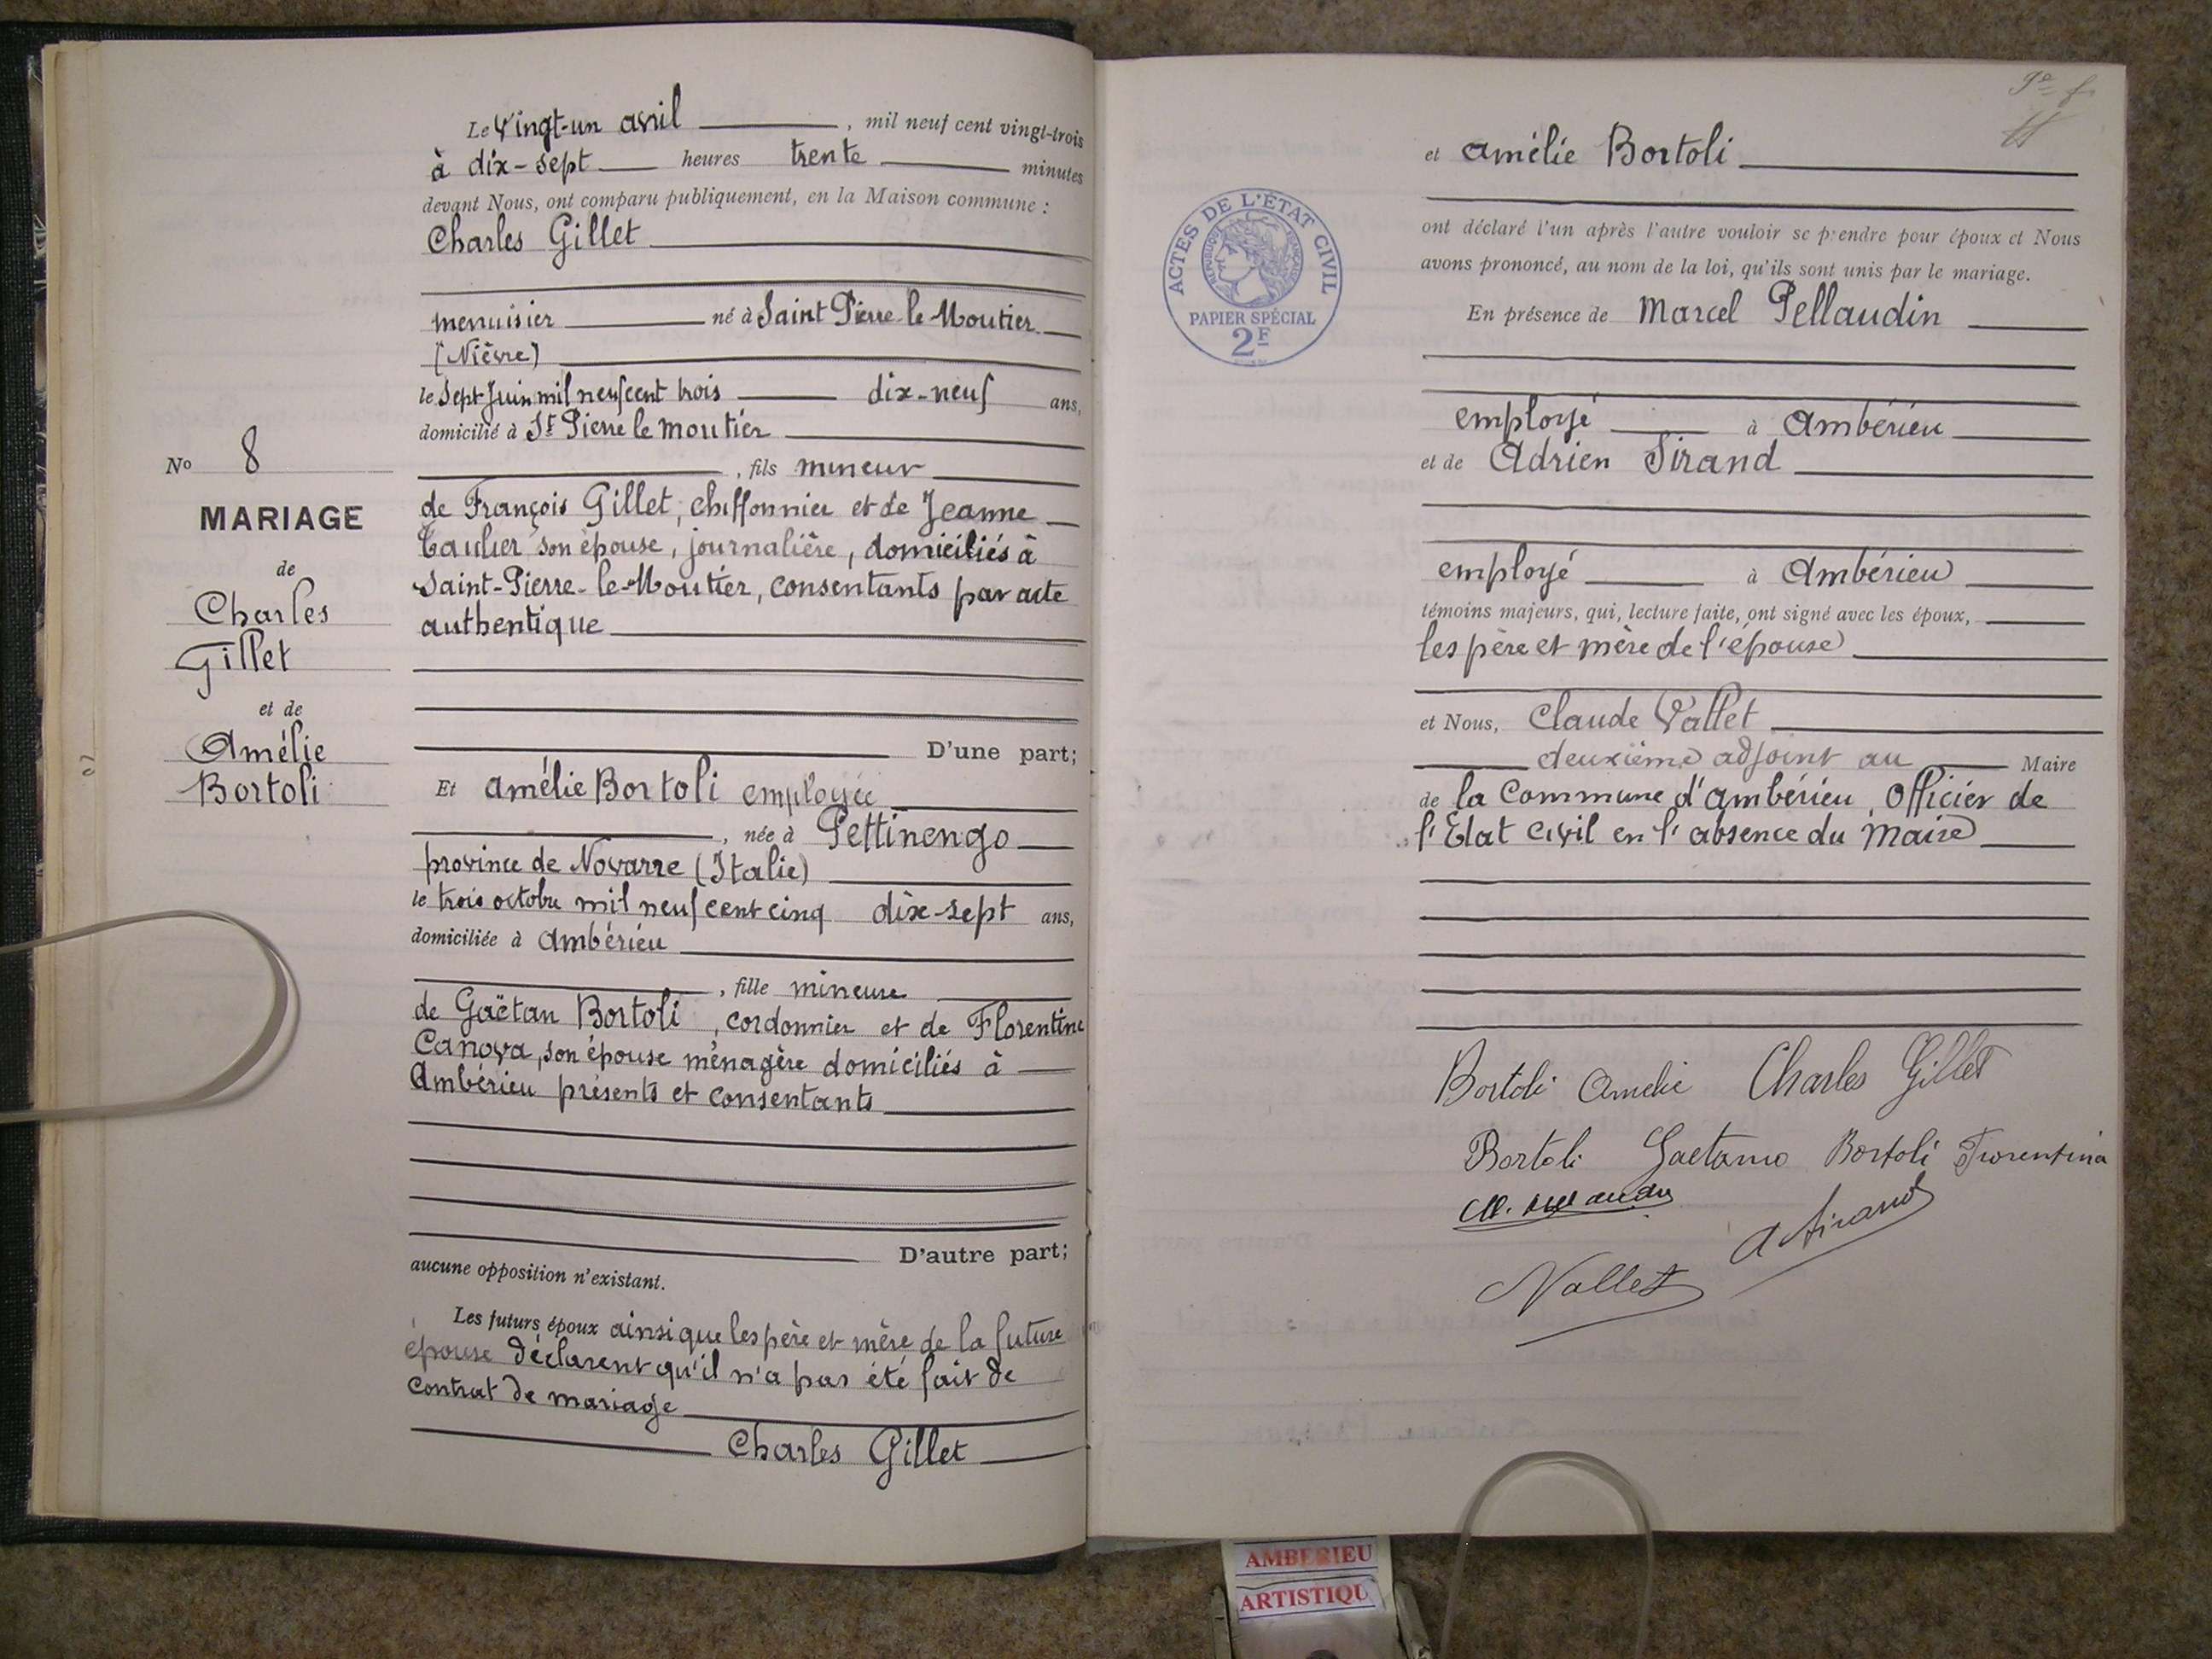 Le Vingt-un avril, mil neuf cent vingt-trois
à dix-sept heures trente minutes
devant Nous, ont comparu publiquement, en la Maison commune :
Charles Gillet
menuisier né à Saint Pierre-le-Moutier
(Nièvre)
le sept Juin mil neuf cent trois dix-neuf ans,
domicilié à St Pierre le Moutier
, fils mineur
de François Gillet, chiffonnier et de Jeanne
son épouse, journalière, domiciliés à
Saint-Pierre-le-Moutier, consentants par acte
authentique
D'une part;
Et Amélie Bortoli employée
, née à Pettinengo
province de Novarre (Italie)
le trois octobre mil neuf cent cinq dix-sept ans,
domiciliée à Ambérieu
, fille mineure
de Gaëtan Bortoli, cordonnier et de Florentine
Canova, son épouse ménagère domiciliés à
Ambérieu présents et consentants
D'autre part;
aucune opposition n'existant.
Les futurs époux ainsi que les père et mère de la future
épouse déclarent qu'il n'a pas été fait de
contrat de mariage
Charles Gillet
No 8
MARIAGE
de
Charles
Gillet
et de
Amélie
Bortoli
et Amélie Bortoli
ont déclaré l'un après l'autre vouloir se prendre pour époux et Nous
avons prononcé, au nom de la loi, qu'ils sont unis par le mariage.
En présence de Marcel Pellaudin
employé à Ambérieu
et de Adrien Sirand
employé à Ambérieu
témoins majeurs, qui, lecture faite, ont signé avec les époux,
les père et mère de l'épouse
et Nous, Claude Vallet
deuxième adjoint au Maire
de la Commune d'Ambérieu, Officier de
l'Etat civil en l'absence du Maire
Bortoli Amelie Charles Gillet
Bortoli Gaetano Bortoli Fiorentina
A Sirand
Vallet
ACTES DE L'ÉTAT CIVIL
RÉPUBLIQUE FRANÇAISE
PAPIER SPÉCIAL
2F
AMBERIEU
ARTISTIQU